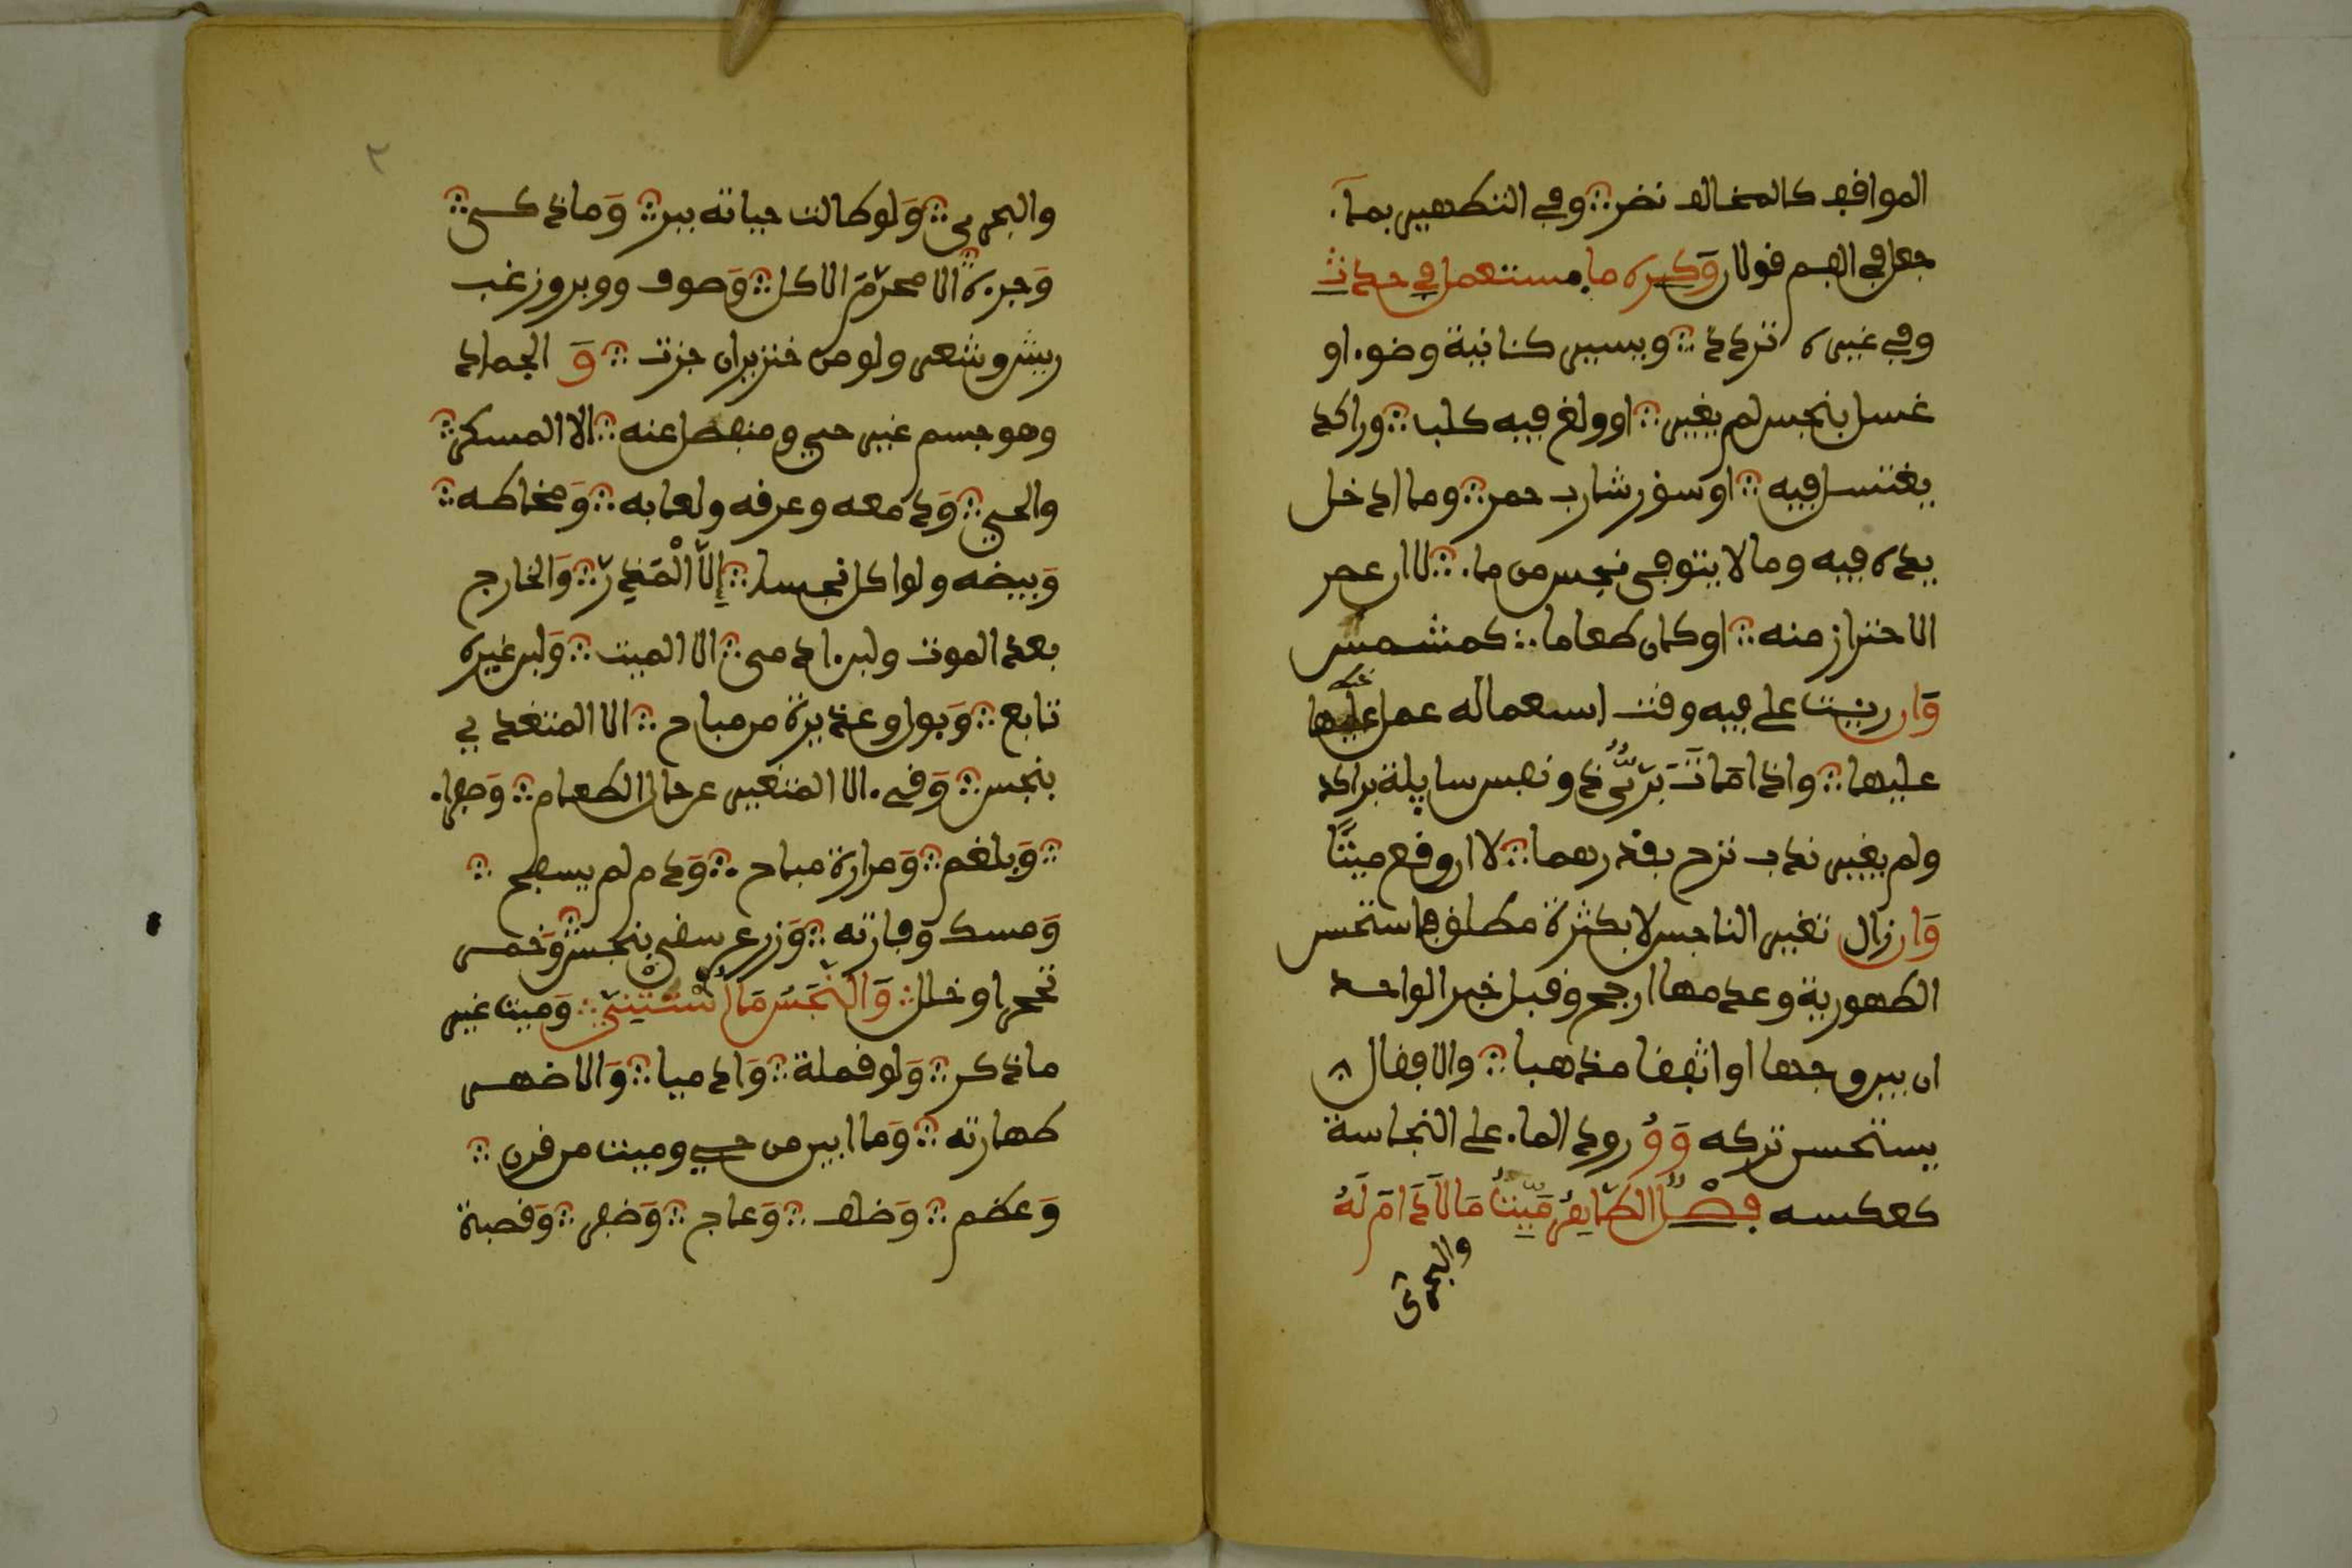 الموافق كالمخالف نضر وفي التطهير بماء
جعل في الفم قولان وكره ماء مستعمل في حدث
وفي غيره تردد ويسير كئانية وضوء او
غسل بنجس لم يغير او ولغ فيه كلب وراكد
يغتسل فيه او سؤر شارب خمر وما ادخل
يده فيه وما لا يتوقى نجس من ماء لا ان عسر
الاحتراز منه او كان طعاما كمشمس
وان رئيت على فيه وقت استعماله عمل عليها
عليها واذا مات بري ذو نفس سايلة براكد
ولم يغير ندب نزح بقدرهما لا ان وقع ميتا
وان زال تغير النجس لا بكثرة مطلق فاستحسن
الطهورية وعدمها ارجح وقبل خبر الواحد
ان بين وجهها او اتفقا مذهبا والا فقال
يستحسن تركه وورود الماء على النجاسة
كعكسه فصل الطاهر ميت ما لا دم له
والبحري
٢
والبحري ولو طالت حياته ببر وما ذكي
وجزءه الا محرم الاكل وصوف ووبر وزغب
ريش وشعر ولو من خنزير ان جزت و الجماد
وهو جسم غير حي ومنفصل عنه الا المسكر
والحي ودمعه وعرقه ولعابه ومخاطه
وبيضه ولو اكل نجسا الا المذر والخارج
بعد الموت ولبن ادمي الا الميت ولبن غيره
تابع وبول وعذرة من مباح الا المتغذي
بنجس وقيء الا المتغير عن حال الطعام وصفراء
وبلغم ومرارة مباح ودم لم يسفح
ومسك وفارته وزرع سقي بنجس وخمر
تحجر او خلل والنجس ما استثني وميت غير
ما ذكر ولو قملة وادميا والاظهر
طهارته وما ابين من حي وميت من قرن
وعظم وظلف وعاج وظفر وقصبة